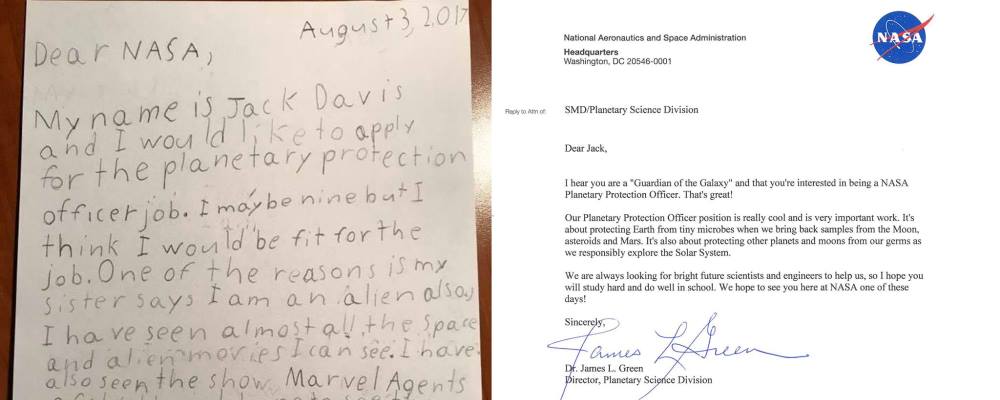 August 3, 2017
Dear NASA,
My name is Jack Davis
and I would like to apply
for the planetary protection
officer job. I may be nine but I
think I would be fit for the
job. One of the reasons is my
sister says I am an alien also,
I have seen almost all the space
and alien movies I can see. I have
also seen the show Marvel Agents
National Aeronautics and Space Administration
Headquarters
Washington, DC 20546-0001
NASA
Reply to Attn of:
SMD/Planetary Science Division
Dear Jack,
I hear you are a "Guardian of the Galaxy" and that you're interested in being a NASA
Planetary Protection Officer. That's great!
Our Planetary Protection Officer position is really cool and is very important work. It's
about protecting Earth from tiny microbes when we bring back samples from the Moon,
asteroids and Mars. It's also about protecting other planets and moons from our germs as
we responsibly explore the Solar System.
We are always looking for bright future scientists and engineers to help us, so I hope you
will study hard and do well in school. We hope to see you here at NASA one of these
days!
Sincerely,
James L Green
Dr. James L. Green
Director, Planetary Science Division